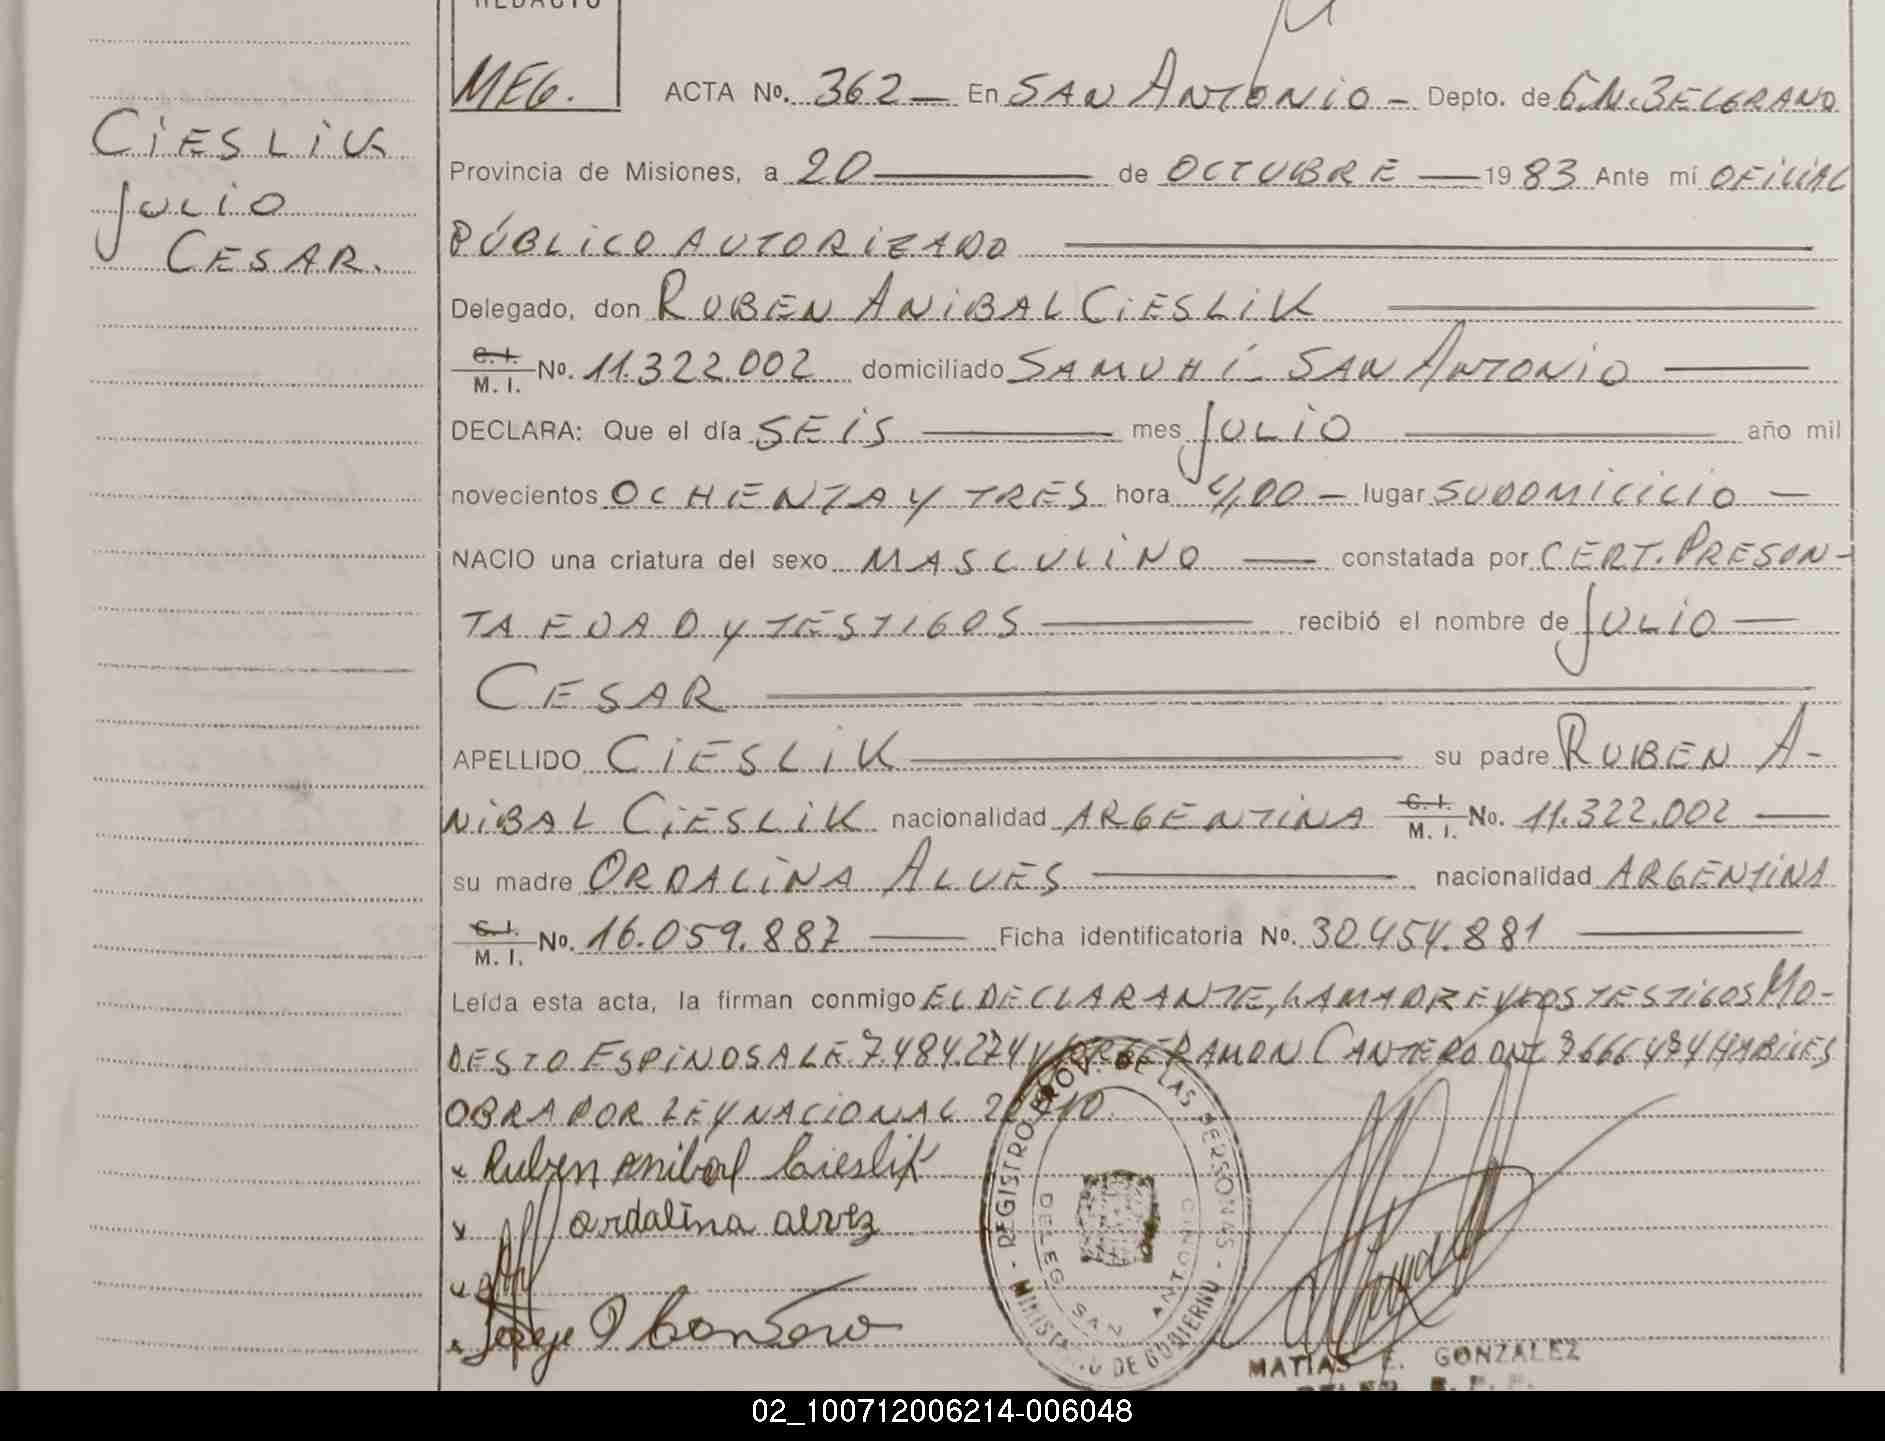 REDACTO
MEG.
CIESLIK
JULIO
CESAR.
ACTA No. 362 — En SAN ANTONIO — Depto. de G.M. BELGRANO
Provincia de Misiones, a 20 — de OCTUBRE — 1983 Ante mí OFICIAL
PÚBLICO AUTORIZADO
Delegado, don RUBEN ANIBAL CIESLIK
C. I. M. I. No. 11.322.002 domiciliado SAMUHÍ - SAN ANTONIO —
DECLARA: Que el día SEIS — mes JULIO — año mil
novecientos OCHENTA Y TRES hora 4,00 — lugar SU DOMICILIO —
NACIO una criatura del sexo MASCULINO — constatada por CERT. PRESUN-
TA EDAD Y TESTIGOS — recibió el nombre de JULIO —
CESAR
APELLIDO CIESLIK — su padre RUBEN A-
NIBAL CIESLIK nacionalidad ARGENTINA C. I. M. I. No. 11.322.002 —
su madre ORDALINA ALVES — nacionalidad ARGENTINA
C. I. M. I. No. 16.059.887 — Ficha identificatoria No. 30.454.881 —
Leída esta acta, la firman conmigo EL DECLARANTE, LA MADRE Y LOS TESTIGOS MO-
DESTO ESPINOSA LE. 7.484.274 Y JORGE RAMON CANTERO DNI HABILES
OBRA POR LEY NACIONAL
x Ruben anibal Cieslik
x ordalina alvez
x
x Jorge R Cantero
REGISTRO PROV. DE LAS PERSONAS - MINISTERIO DE GOBIERNO -
DELEG. SAN ANTONIO
MATIAS E. GONZALEZ
02_100712006214-006048